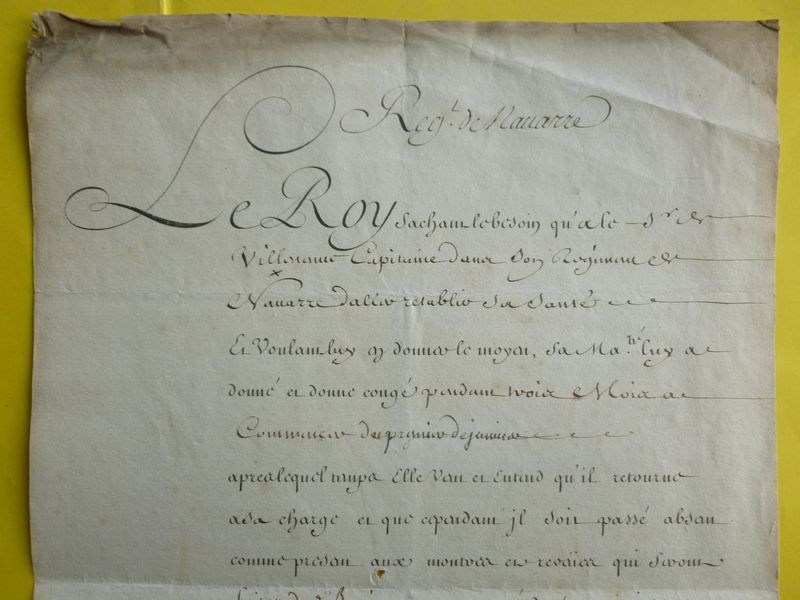 Reg.t de Nauarre
Le Roy sachant le besoin qu'a le S.r de
Capitaine dans son Regiment de
Nauarre d'aller retablir sa santé
Et Voulant luy en donner le moyen, sa Ma.té luy a
donné et donne congé pendant trois Mois a
Commencer du premier de januier
apres lequel temps Elle Veut et Entend qu'il retourne
a sa charge et que cependant jl soit passé absent
comme present aux montres et reveües qui seront